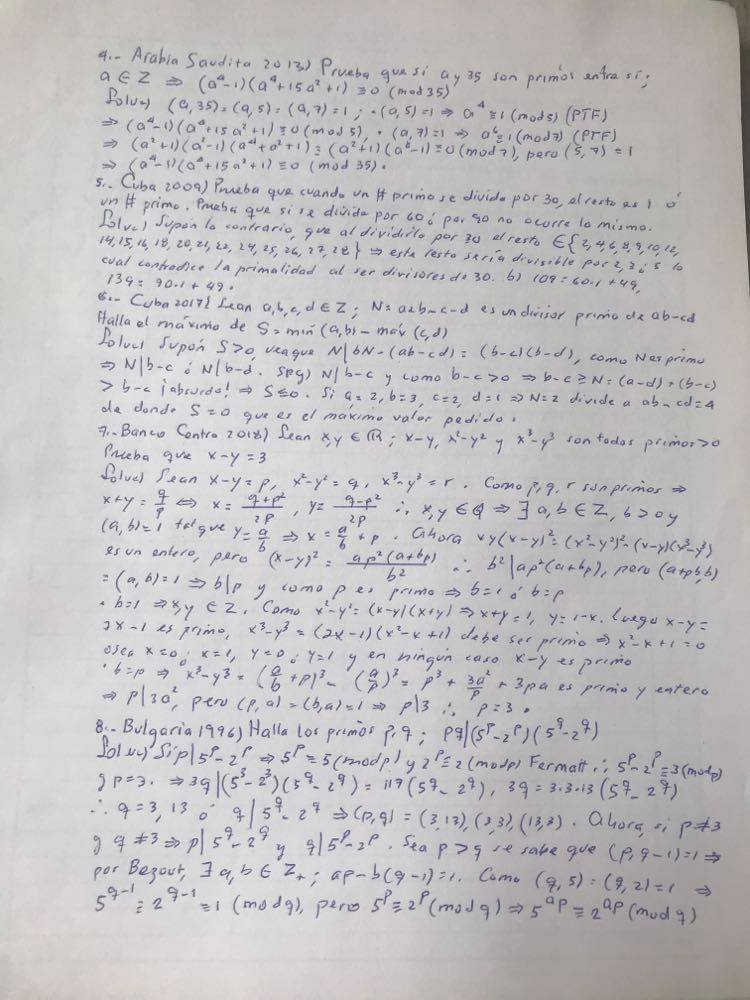 4.- Arabia Saudita 2013) Prueba que si a y 35 son primos entre sí;
a ∈ Z ⇒ (a⁴-1)(a⁴+15a²+1) ≡ 0 (mod 35)
Soluc) (a,35)=(a,5)=(a,7)=1; • (a,5)=1 ⇒ a⁴≡1 (mod 5) (PTF)
⇒ (a⁴-1)(a⁴+15a²+1) ≡ 0 (mod 5), • (a,7)=1 ⇒ a⁶≡1 (mod 7) (PTF)
⇒ (a²+1)(a²-1)(a⁴+a²+1) ≡ (a²+1)(a⁶-1) ≡ 0 (mod 7), pero (5,7)=1
⇒ (a⁴-1)(a⁴+15a²+1) ≡ 0 (mod 35).
5.- Cuba 2009) Prueba que cuando un # primo se divide por 30, el resto es 1 ó
un # primo. Prueba que si se divide por 60 ó por 90 no ocurre lo mismo.
Soluc) Supón lo contrario, que al dividirlo por 30 el resto ∈ {2,4,6,8,9,10,12,
14,15,16,18,20,21,22,24,25,26,27,28} ⇒ este resto sería divisible por 2,3 ó 5 lo
cual contradice la primalidad al ser divisores de 30. b) 109=60.1+49,
139=90.1+49.
6.- Cuba 2017) Sean a,b,c,d ∈ Z; N=a+b-c-d es un divisor primo de ab-cd
Halla el máximo de S=mín(a,b)-máx(c,d)
Soluc) Supón S>0, vea que N|bN-(ab-cd)=(b-c)(b-d), como N es primo
⇒ N|b-c ó N|b-d. Spg) N|b-c y como b-c>0 ⇒ b-c≥N=(a-d)+(b-c)
> b-c ¡absurdo! ⇒ S≤0. Si a=2, b=3, c=2, d=1 ⇒ N=2 divide a ab-cd=4
de donde S=0 que es el máximo valor pedido.
7.- Banco Centro 2018) Sean x,y ∈ ℝ; x-y, x²-y² y x³-y³ son todos primos>0
Prueba que x-y=3
Soluc) Sean x-y=p, x²-y²=q, x³-y³=r. Como p,q,r son primos ⇒
x+y=q/p ⇔ x=(q+p²)/2p, y=(q-p²)/2p ∴ x,y ∈ ℚ ⇒ ∃ a,b ∈ Z, b>0 y
(a,b)=1 tal que y=a/b ⇒ x=a/b+p. Ahora xy(x-y)²=(x²-y²)²-(x-y)(x³-y³)
es un entero, pero (x-y)²=ap²(a+bp)/b² ∴ b²|ap²(a+bp), pero (a+pb,b)
=(a,b)=1 ⇒ b|p y como p es primo ⇒ b=1 ó b=p
• b=1 ⇒ x,y ∈ Z. Como x²-y²=(x-y)(x+y) ⇒ x+y=1, y=1-x. Luego x-y=
2x-1 es primo, x³-y³=(2x-1)(x²-x+1) debe ser primo ⇒ x²-x+1=0
osea x=0 ó x=1, y=0 ó y=1 y en ningún caso x-y es primo
• b=p ⇒ x³-y³=(a/b+p)³-(a/p)³=p³+3a²/p+3pa es primo y entero
⇒ p|3a², pero (p,a)=(b,a)=1 ⇒ p|3 ∴ p=3.
8.- Bulgaria 1996) Halla los primos p,q; pq|(5ᵖ-2ᵖ)(5^q-2^q)
Soluc) Si p|5ᵖ-2ᵖ ⇒ 5ᵖ≡5(mod p) y 2ᵖ≡2(mod p) Fermatt ∴ 5ᵖ-2ᵖ≡3(mod p)
y p=3. ⇒ 3q|(5³-2³)(5^q-2^q)=117(5^q-2^q), 3q=3.3.13(5^q-2^q)
∴ q=3,13 ó q|5^q-2^q ⇒ (p,q)=(3,13),(3,3),(13,3). Ahora, si p≠3
y q≠3 ⇒ p|5^q-2^q y q|5ᵖ-2ᵖ. Sea p>q se sabe que (p,q-1)=1 ⇒
por Bezout, ∃ a,b ∈ Z₊; ap-b(q-1)=1. Como (q,5)=(q,2)=1 ⇒
5^(q-1)≡2^(q-1)≡1 (mod q), pero 5ᵖ≡2ᵖ(mod q) ⇒ 5^(ap)≡2^(ap)(mod q)